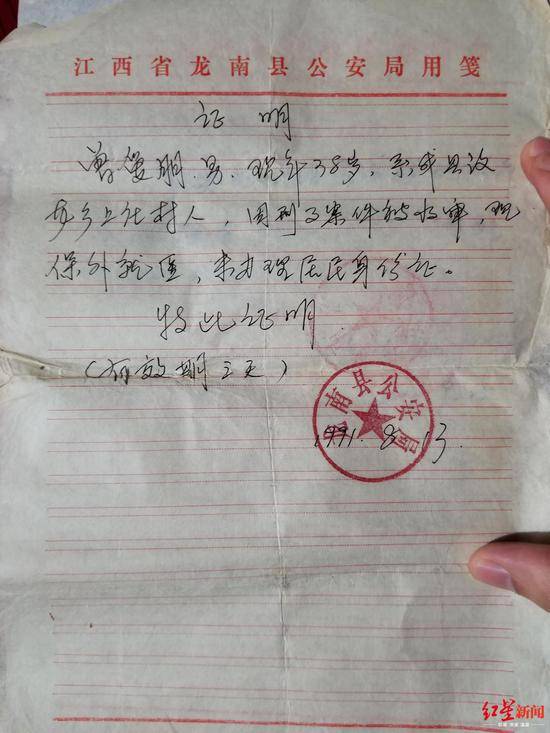 江西省龙南县公安局用笺
证 明
曾 明,男,现年38岁,系我县汶
龙乡上庄村人,因刑事案件被收审,现
保外就医,未办理居民身份证。
特此证明
(有效期三天)
龙南县公安局
1991.8.13.
红星新闻